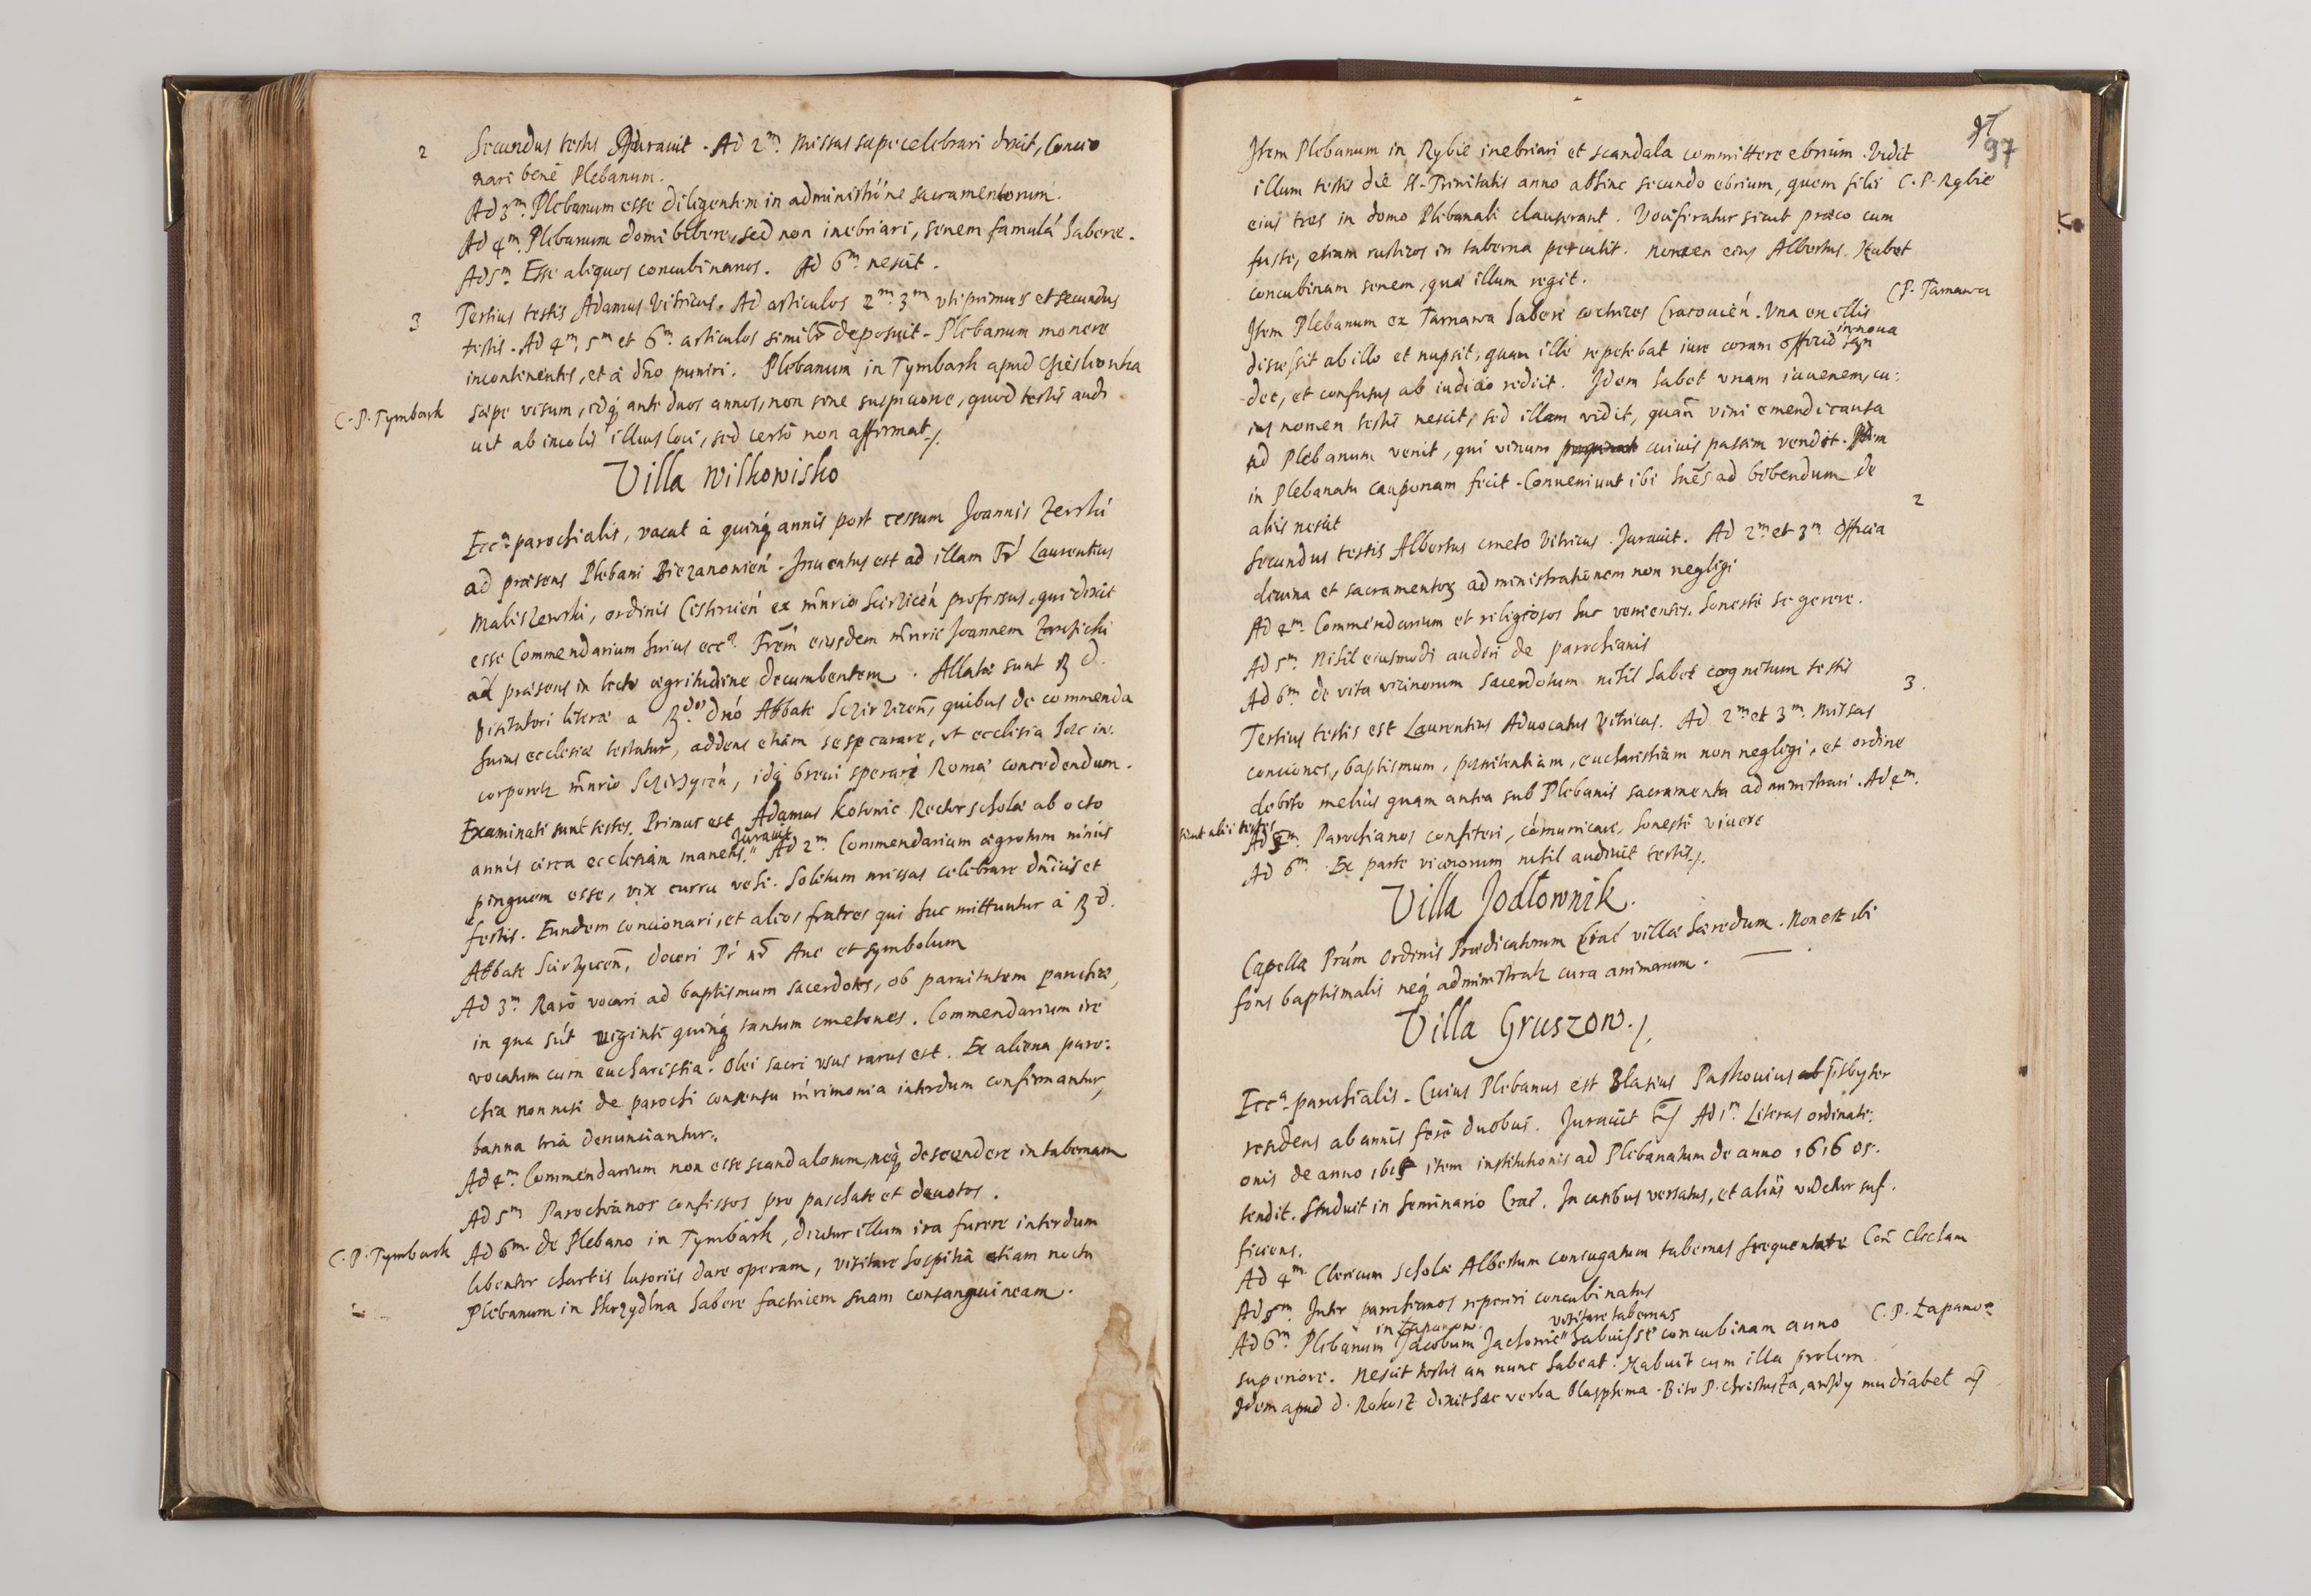 2 Secundus testis Juravit. Ad 2m. Missas saepe celebrari dixit, Concio
nari bene Plebanum.
Ad 3m. Plebanum esse diligentem in administrõne sacramentorum.
Ad 4m. Plebanum domi bibere, sed non inebriari, senem famulã habere.
Ad 5m. Esse aliquos concubinarios. Ad 6m nescit.
3 Tertius testis Adamus Vitricus. Ad articulos 2m 3m vti primus et secundus
testis. Ad 4m, 5m et 6m articulos simil̃r deposuit. Plebanum monere
incontinentes, et à dño puniri. Plebanum in Tymbark apud
C. P. Tymbark
saepe visum, idq; ante duos annos, non sine suspicione, quod testis audi
uit ab incolis illius loci, sed certo non affirmat./
Villa Wilkowisko
Ecca parochialis, vacat à quinq; annis post cessum Joannis
ad praesens Plebani Biezanowień. Inuentus est ad illam Fr Laurentius
Maliszewski, ordinis Cistercień ex mñrio Scirzicen professus, qui dixit
esse Commendarium huius ecca. Frem eiusdem mñrii Joannem
ad praesens in lecto aegritudine decumbentem. Allatae sunt R d.
visitatori literae a Rdo. dnó Abbate Scirzicen, quibus de commenda
huius ecclesiae testatur, addens etiam se curare, vt ecclesia haec in:
corporetur mñrio Scirzycen, idq; breui sperari Romae concedendum.
Examinati sunt testes. Primus est Adamus Rector scholae ab octo
annis circa ecclesiam manens, Jurauit. Ad 2m. Commendarium aegrotum nimis
pinguem esse, vix curru vehi. Solitum missas celebrare dñicis et
festis. Eundem concionari, et alios fratres qui huc mittuntur à R d.
Abbate Scirzycen, doceri Pr nr Aue et symbolum
Ad 3m. Raro vocari ad baptismum sacerdotes, ob paruitatem parochiae,
in qua sũt viginti quinq; tantum cmetones. Commendarium ire
vocatum cum eucharistia. Olei sacri vsus rarus est. Ex aliena paro:
chia non nisi de parochi consensu mrimonia interdum confirmantur,
banna tria denunciantur.
Ad 4m. Commendarium non esse scandalosum, neq; descendere in tabernam
Ad 5m Parochianos confessos pro paschate et deuotos.
C. P. Tymbark
Ad 6m. de Plebano in Tymbark, dicitur illum ira furere interdum
libenter chartis lusoriis dare operam, visitare hospitia etiam noctu
Plebanum in Skrzydlna habere factricem suam consanguineam.
97
97
Item Plebanum in Rybie inebriari et scandala committere ebrium. Vidit
illum testis die S. Trinitatis anno abhinc secundo ebrium, quem filii
C. P. Rybie
eius tres in domo Plebanali clauserant. Vociferatur sicut praeco cum
fuste, etiam rusticos in taberna percutit. nomen eius Albertus. Habet
concubinam senem, quae illum regit.
C. P. Tarnawa
Item Plebanum ex Tarnawa habere Cracouień. Vna ex illis
discessit ab illo et nupsit, quam ille repetebat iure coram
in noua
dee, et confusus ab iudicio rediit. Idem habet vnam iuuenem, cu:
ius nomen testis nescit, sed illam vidit, quañ vini emendi causa
ad Plebanum venit, qui vinum cuiuis passim vendit. Idem
in Plebanatu cauponam fecit. Conueniunt ibi hoẽs ad bibendum de
aliis nescit
2
Secundus testis Albertus cmeto Vitricus. Jurauit. Ad 2m et 3m Officia
diuina et sacramentor administrationem non negligi
Ad 4m. Commendarium et religiosos huc venientes honeste se gerere.
Ad 5m. Nihil eiusmodi audiri de parochianis
Ad 6m de vita vicinorum sacerdotum nihil habet cognitum testis
3.
Tertius testis est Laurentius Aduocatus Vitricus. Ad 2m et 3m. Missas
conciones, baptismum, paenitentiam, eucharistiam non negligi, et ordine
debito melius quam antea sub Plebanis sacramenta administrari. Ad 4m.
sicut alii testes
Ad 5m. Parochianos confiteri, cõmunicare, honeste viuere
Ad 6m. Ex parte vicinorum nihil audiuit testis./.
Villa Jodłownik.
Capella Prúm Ordinis Praedicatorum Crac villae haeredum. Non est ibi
fons baptismalis neq; administratur cura animarum.
Villa Gruszow./
Ecca parochialis. Cuius Plebanus est Blasius Paskouius psbyter
residens ab annis fere duobus. Jurauit Ad 1m. Literas ordinati:
onis de anno 1615 item institutionis ad Plebanatum de anno 1616 os:
tendit. Studuit in Seminario Crac. In casibus versatus, et aliis videtur suf:
ficiens.
Ad 4m. Clericum scholae Albertum coniugatum tabernas frequentare Con Clictam
Ad 5m. Inter parochianos reperiri concubinatus
in Łapanow. visitare tabernas
Ad 6m. Plebanum Jacobum habuisse concubinam anno
C. P. Łapanow
superiore. Nescit testis an nunc habeat. Habuit cum illa prolem
Idem apud d. dixit haec verba blasphema.